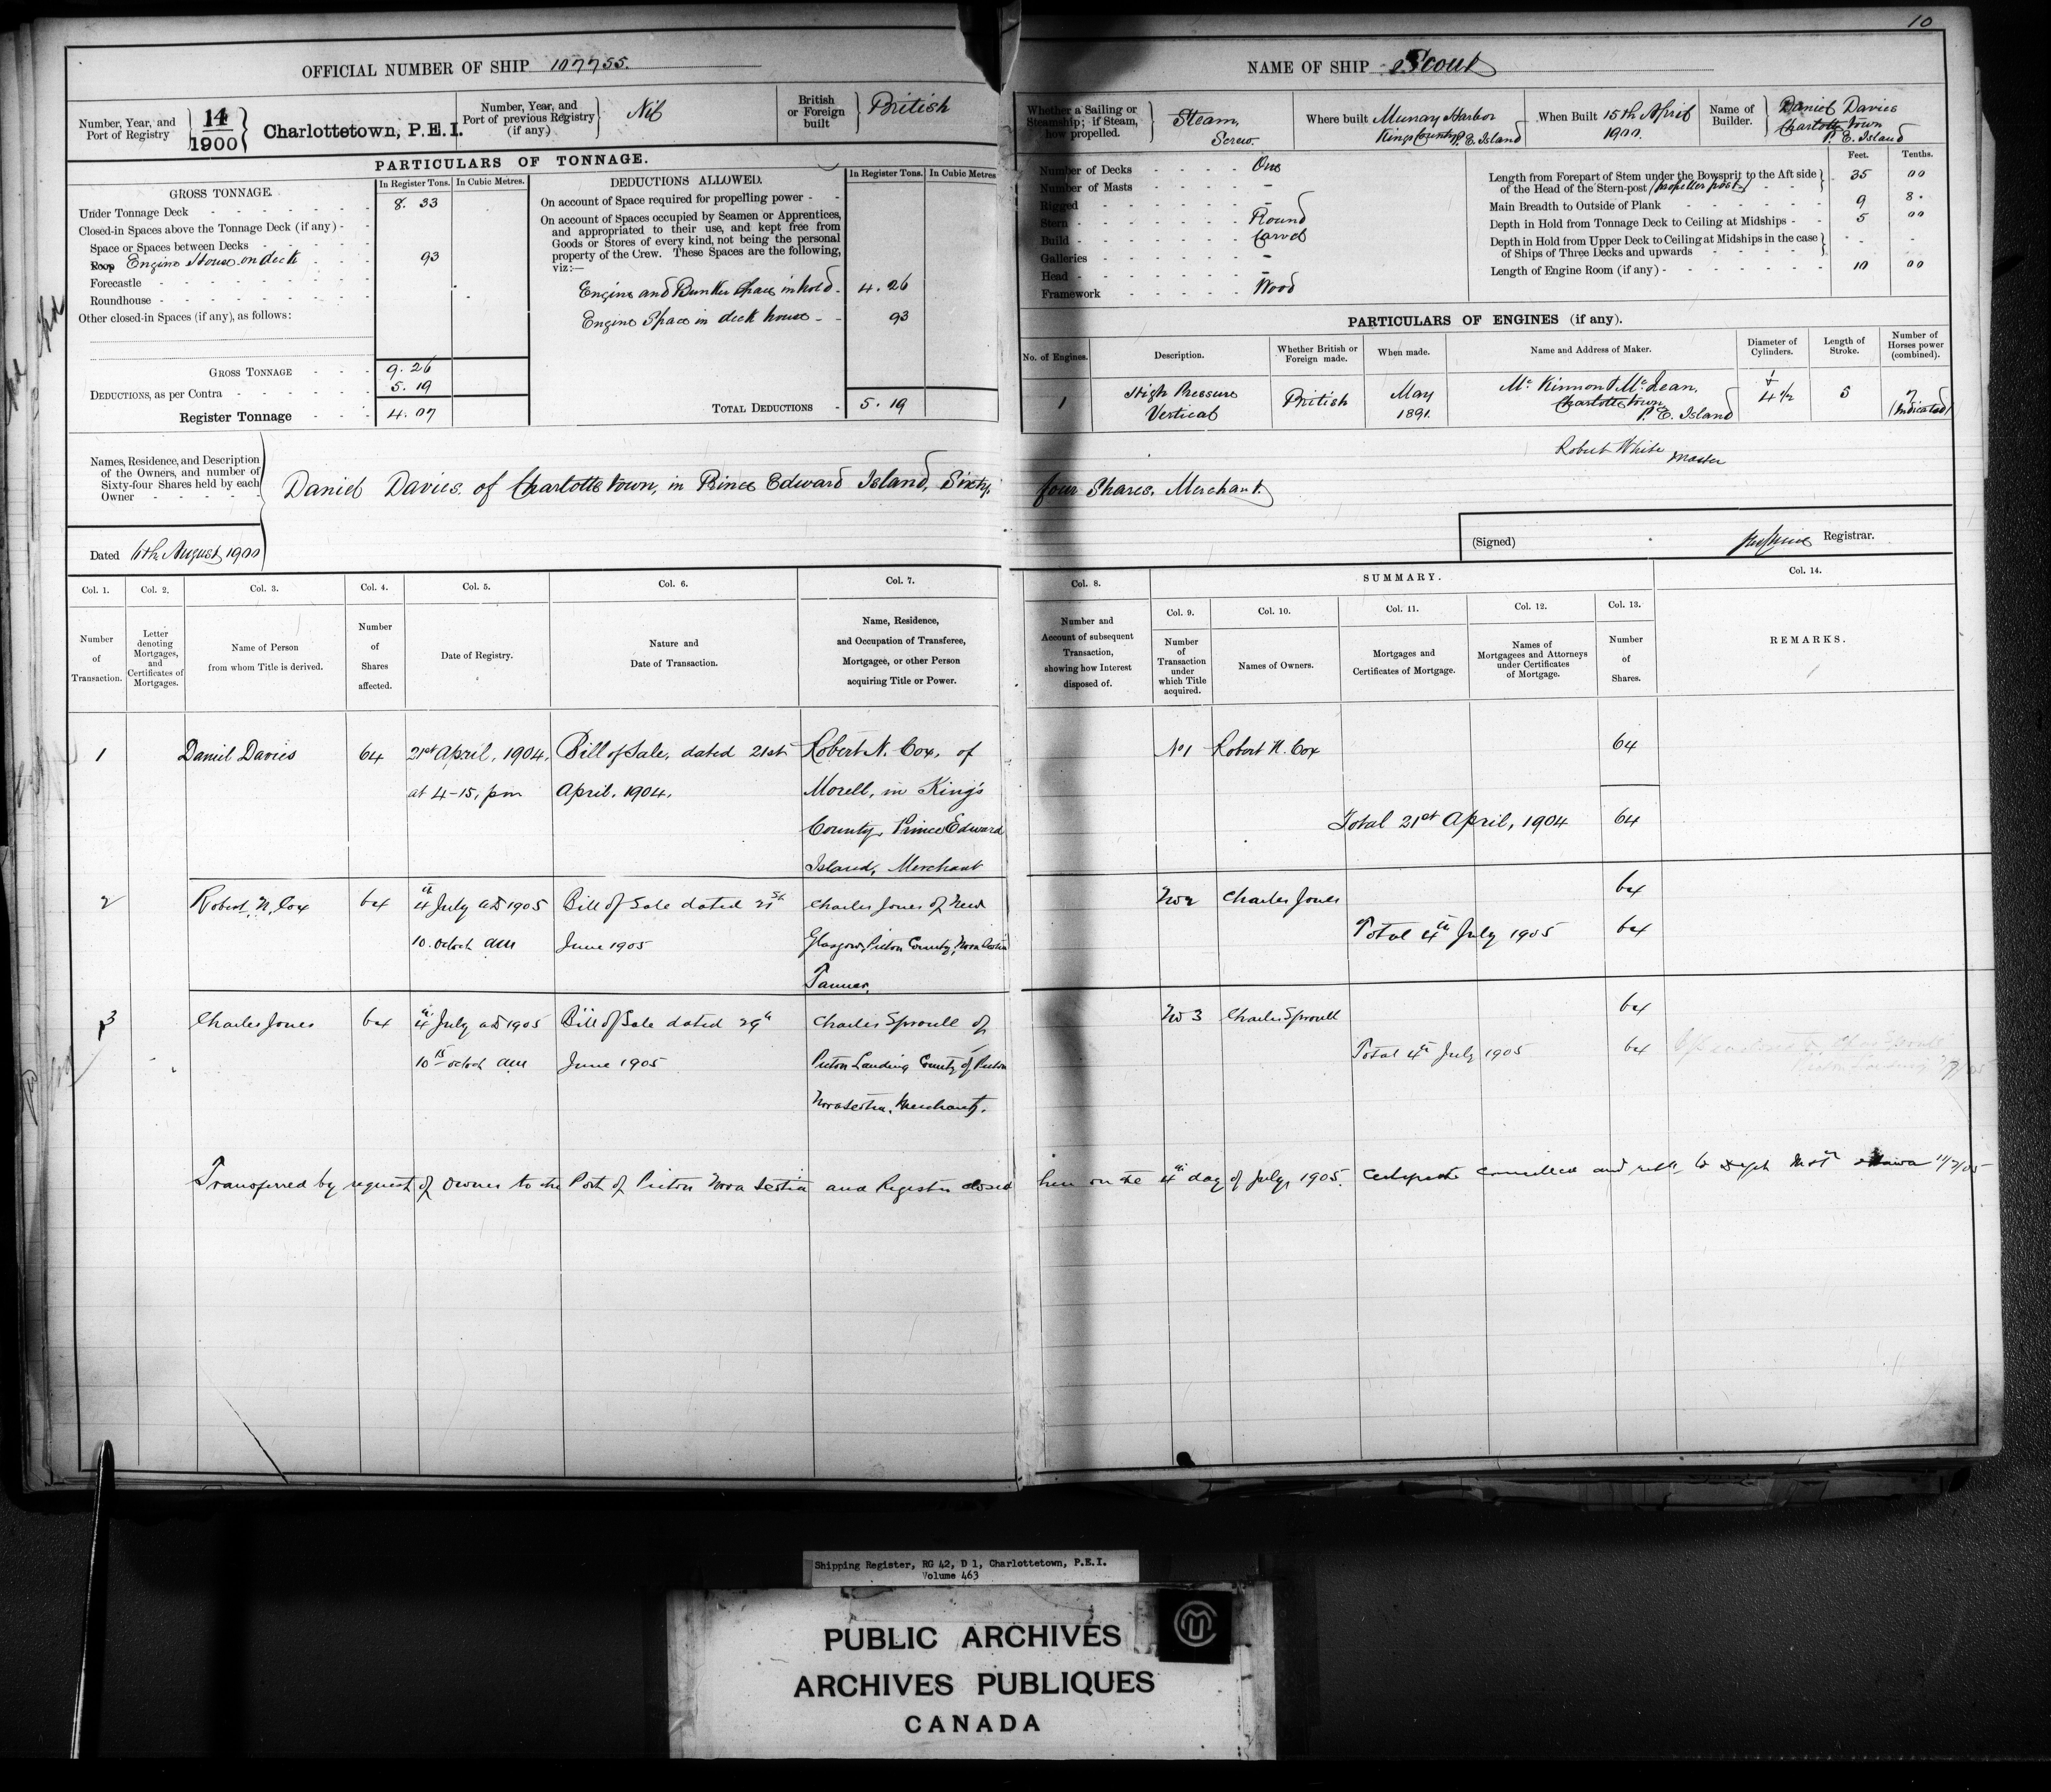 10
OFFICIAL NUMBER OF SHIP 107755.
Number, Year, and
Port of Registry
14
1900
Charlottetown, P.E.I.
Number, Year, and
Port of previous Registry
(if any)
Nil
British
or Foreign
built
British
PARTICULARS OF TONNAGE.
GROSS TONNAGE.
In Register Tons.
In Cubic Metres.
Under Tonnage Deck 8. 33
Closed-in Spaces above the Tonnage Deck (if any)
Space or Spaces between Decks
Poop Engine House on deck 93
Forecastle
Roundhouse
Other closed-in Spaces (if any), as follows:
GROSS TONNAGE 9. 26
DEDUCTIONS, as per Contra 5. 19
Register Tonnage 4. 07
DEDUCTIONS ALLOWED.
In Register Tons.
In Cubic Metres
On account of Space required for propelling power
On account of Spaces occupied by Seamen or Apprentices,
and appropriated to their use, and kept free from
Goods or Stores of every kind, not being the personal
property of the Crew. These Spaces are the following,
viz:—
Engine and Bunker Space in hold 4. 26
Engine Space in deck house 93
TOTAL DEDUCTIONS 5. 19
NAME OF SHIP Scout
Whether a Sailing or
Steamship; if Steam,
how propelled.
Steam,
Screw.
Where built Murray Harbor
Kings County P. E. Island
When Built 15th April
1900.
Name of
Builder.
Daniel Davies
Charlottetown
P. E. Island
Number of Decks One
Number of Masts –
Rigged –
Stern Round
Build Carvel
Galleries –
Head –
Framework Wood
Feet.
Tenths.
Length from Forepart of Stem under the Bowsprit to the Aft side
of the Head of the Stern-post (propeller post) 35 00
Main Breadth to Outside of Plank 9 8.
Depth in Hold from Tonnage Deck to Ceiling at Midships 5 00
Depth in Hold from Upper Deck to Ceiling at Midships in the case
of Ships of Three Decks and upwards
Length of Engine Room (if any) 10 00
PARTICULARS OF ENGINES (if any).
No. of Engines.
Description.
Whether British or
Foreign made.
When made.
Name and Address of Maker.
Diameter of
Cylinders.
Length of
Stroke.
Number of
Horses power
(combined).
1
High Pressure
Vertical
British
May
1891.
McKinnon & McLean,
Charlottetown,
P. E. Island
4 1/2
5
7
(Indicated)
Robert White Master
Names, Residence, and Description
of the Owners, and number of
Sixty-four Shares held by each
Owner
Daniel Davies of Charlottetown, in Prince Edward Island, Sixty four Shares. Merchant.
Dated 6th August 1900
(Signed)
Registrar.
Col. 1.
Number
of
Transaction.
Col. 2.
Letter
denoting
Mortgages,
and
Certificates of
Mortgages.
Col. 3.
Name of Person
from whom Title is derived.
Col. 4.
Number
of
Shares
affected.
Col. 5.
Date of Registry.
Col. 6.
Nature and
Date of Transaction.
Col. 7.
Name, Residence,
and Occupation of Transferee,
Mortgagee, or other Person
acquiring Title or Power.
Col. 8.
Number and
Account of subsequent
Transaction,
showing how Interest
disposed of.
SUMMARY.
Col. 9.
Number
of
Transaction
under
which Title
acquired.
Col. 10.
Names of Owners.
Col. 11.
Mortgages and
Certificates of Mortgage.
Col. 12.
Names of
Mortgagees and Attorneys
under Certificates
of Mortgage.
Col. 13.
Number
of
Shares.
Col. 14.
REMARKS.
1
Daniel Davies
64
21st April, 1904,
at 4-15, pm
Bill of Sale, dated 21st
April, 1904,
Robert N. Cox, of
Morell, in King's
County, Prince Edward
Island, Merchant
No 1
Robert N. Cox
64
Total 21st April, 1904 64
2
Robert N. Cox
64
4th July AD 1905
10. oclock am
Bill of Sale dated 21st
June 1905
Charles Jones of New
Glasgow, Pictou County, Nova Scotia
Tanner.
No 2
Charles Jones
64
Total 4th July 1905 64
3
Charles Jones
64
4th July AD 1905
10 15 oclock am
Bill of Sale dated 29th
June 1905
Charles Sproull of
Pictou Landing County of Pictou
Nova Scotia, Merchant.
No 3
Charles Sproull
64
Total 4th July 1905 64
Transferred by request of Owner to the Port of Pictou Nova Scotia and Register closed here on the 4th day of July, 1905. Certificate cancelled and Dept Ottawa 11/7/05
Shipping Register, RG 42, D 1, Charlottetown, P.E.I.
Volume 463
PUBLIC ARCHIVES
ARCHIVES PUBLIQUES
CANADA